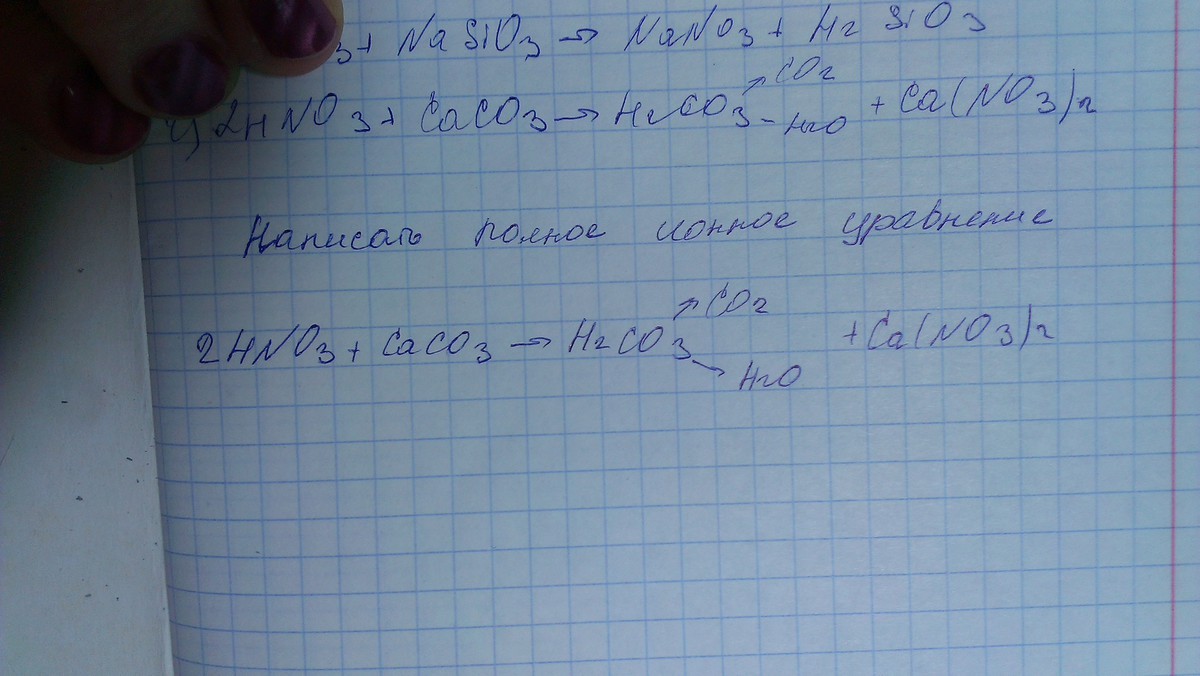 3 + NaSiO3 → NaNO3 + H2SiO3
4) 2HNO3 + CaCO3 → H2CO3 ↗ CO2 - H2O + Ca(NO3)2
Написать полное ионное уравнение
2HNO3 + CaCO3 → H2CO3 ↗ CO2 → H2O + Ca(NO3)2